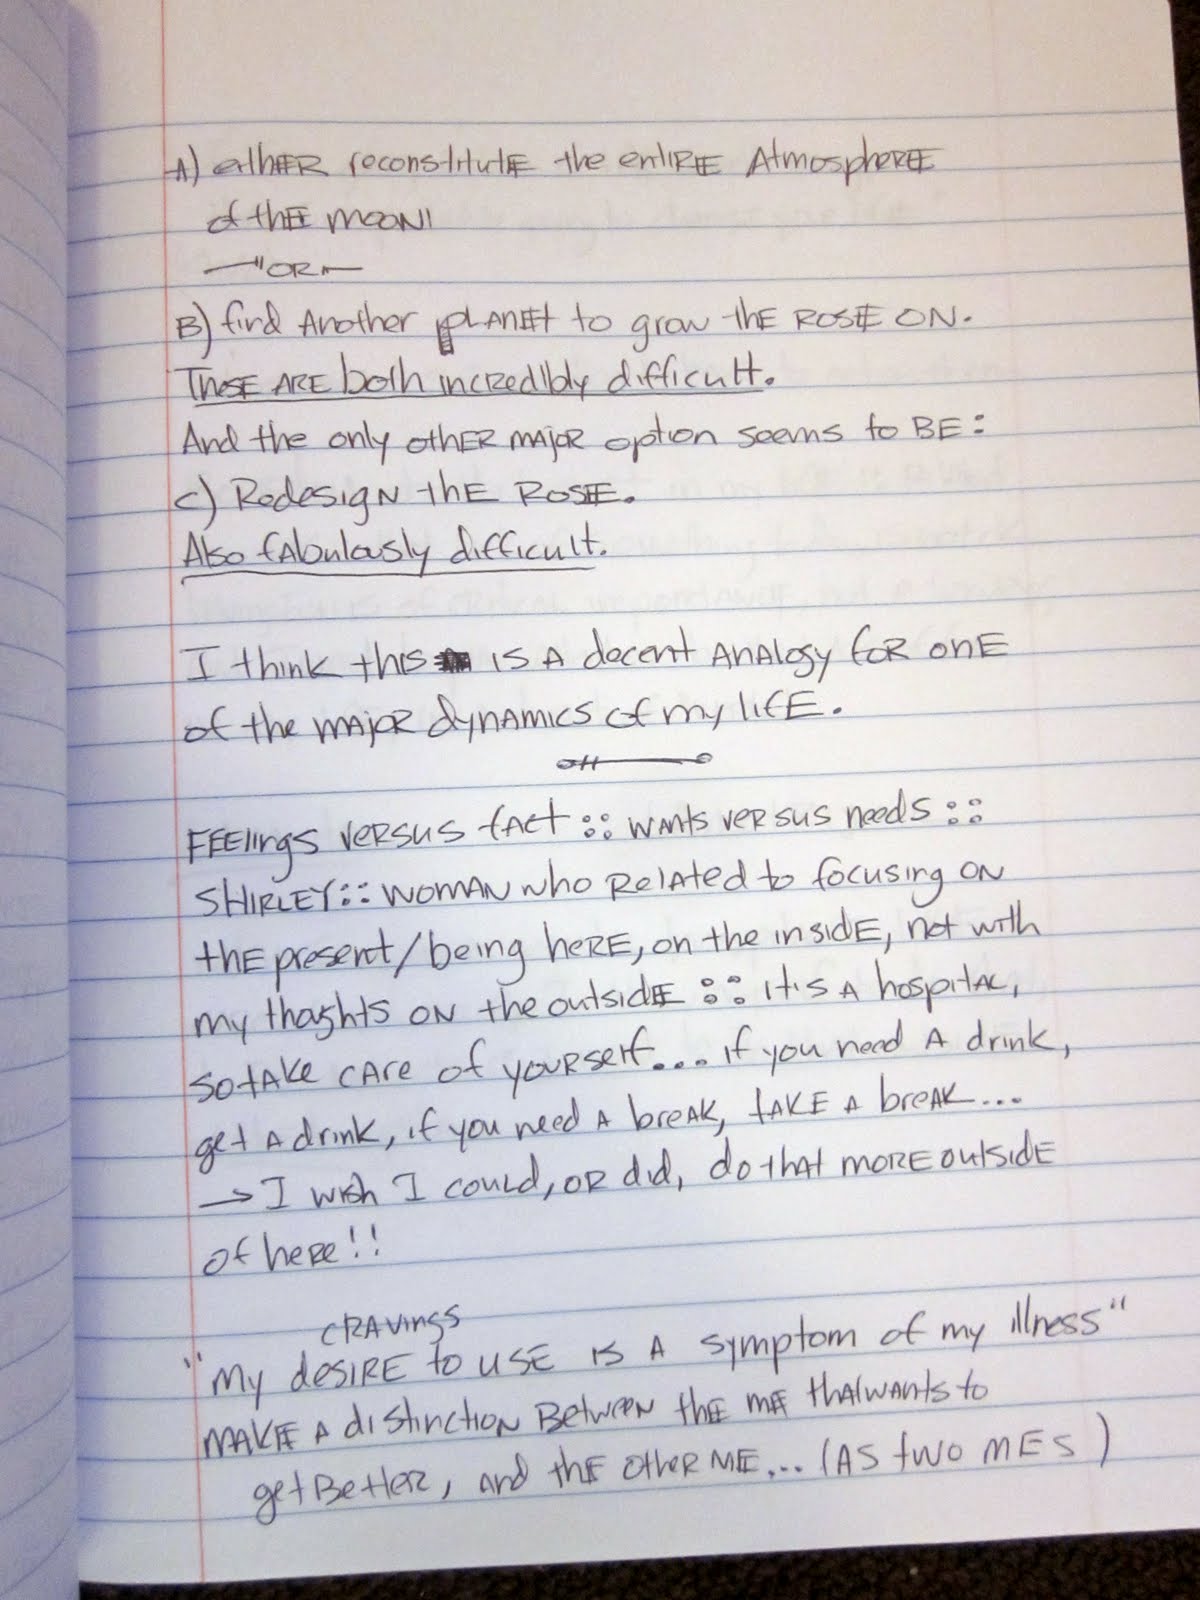 A) either reconstitute the entire Atmosphere
of the moon!
—"OR"—
B) find Another planet to grow the Rose on.
These are both incredibly difficult.
And the only other major option seems to be:
C) Redesign the Rose.
Also fabulously difficult.
I think this is a decent analogy for one
of the major dynamics of my life.
Feelings versus fact :: wants versus needs ::
SHIRLEY :: woman who related to focusing on
the present/being here, on the inside, not with
my thoghts on the outside :: it's a hospital,
so take care of yourself... if you need a drink,
get a drink, if you need a break, take a break...
→ I wish I could, or did, do that more outside
of here!!
cravings
"My desire to use is a symptom of my illness"
make a distinction between the me that wants to
get better, and the other me... (as two mes)